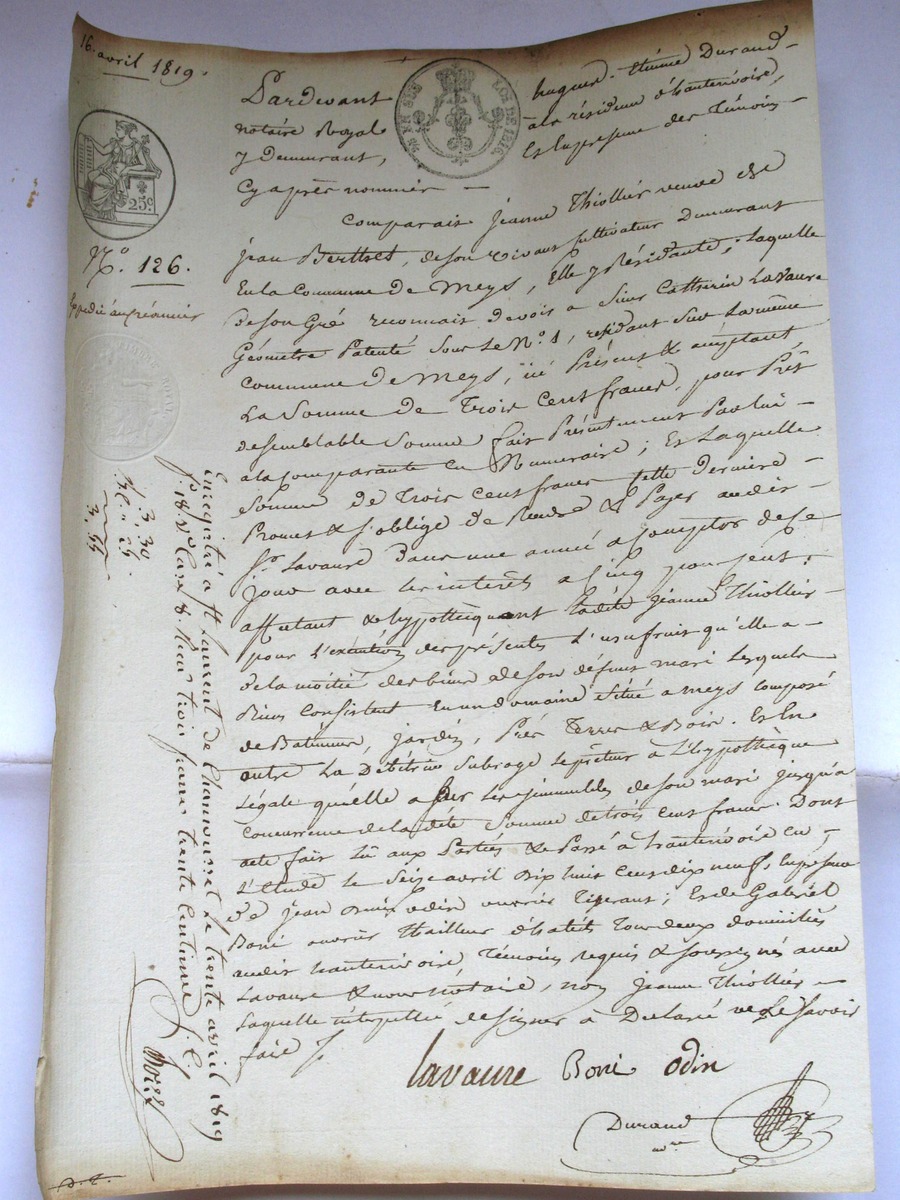 16 avril 1819.
Pardevant hugues Etienne Durand
notaire Royal à la résidence d'hauterivoire,
y demeurant, Et En presence des Témoins
Cy après nommés
Comparait Jeanne Thiollier veuve de
jean Berthet, de son vivant Cultivateur Demeurant
En la Commune De Meys, Elle y Résidante; Laquelle
De son Gré reconnait devoir a Sieur Catherin Lavaure
Géomètre Patenté sous Le No. 1, residant sur La même
Commune De Meys, ici Présent & acceptant,
La Somme De Trois Cent francs, pour Prêt
de semblable Somme fait Présentement Par lui
a la Comparante En Numeraire; Et Laquelle
Somme De Trois Cent francs cette Dernière
Promet & s'oblige De Rendre & Payer audit
Sr. Lavaure Dans une année a Compter de Ce
jour avec les intérêts a Cinq pour Cent;
affectant & hypothèquant ladite Jeanne Thiollier
pour L'exécution des présentes L'usufruit qu'elle a
de la moitié des biens de son défunt mari Lesquels
Biens Consistent En un domaine situé a meys Composé
de Batiments, jardin, Prés Terres & Bois. Et En
outre La Débitrice Subroge le prêteur à L'hypothèque
Légale qu'elle a sur Les immeubles de son mari jusqu'a
Concurrence de la dite Somme de trois Cent francs. Dont
acte fait Lû aux Parties & Passé à hauterivoire En
L'Etude Le Seize avril Dix huit Cent dix neuf, En présence
De jean odin ouvrier Tisserant; Et de Gabriel
Boni ouvrier Thailleur d'habits Tous deux domiciliés
audit hauterivoire Témoins requis & soussignés avec
Lavaure & nous nótaire, non Jeanne Thiollier
Laquelle interpellée de signer à Declaré ne Le Savoir
faire
lavaure Boni odin
Durand
nore
EN SUS
LOI DE 1816.
25c
No. 126.
Expédié au créancier
3,30
25
3.55
Enregistré a St Laurent de Chamousset Le trente avril 1819
fo. 18 Vo Cases 8. Reçu trois francs trente Centimes